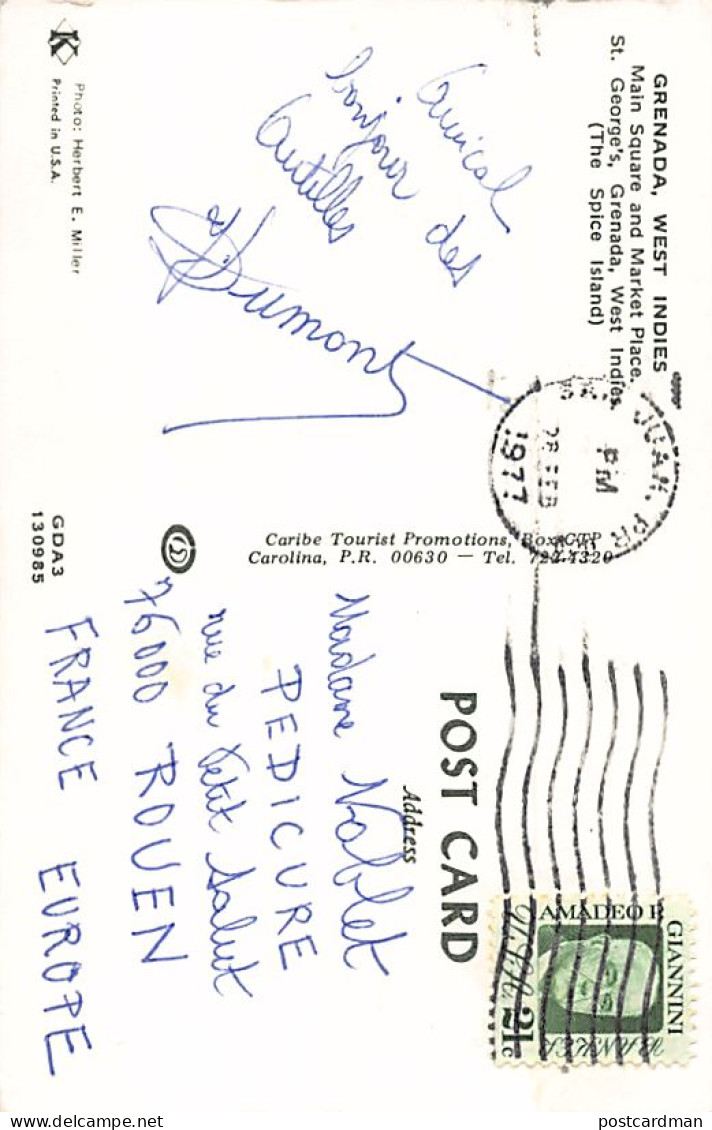 GRENADA, WEST INDIES
Main Square and Market Place.
St. George's, Grenada, West Indies.
(The Spice Island)
Amical
bonjour des
Antilles
Dumont
K
Photo: Herbert E. Miller
Printed in U.S.A.
JUAN, PR
PM
28 FEB
1977
Caribe Tourist Promotions, Box CTP
Carolina, P.R. 00630 — Tel. 722-1320
GDA3
130985
POST CARD
Address
AMADEO P.
GIANNINI
BANKER
U.S.A. 21c
Madame Nablet
PEDICURE
rue du Petit Salut
76000 ROUEN
FRANCE EUROPE
postcardman